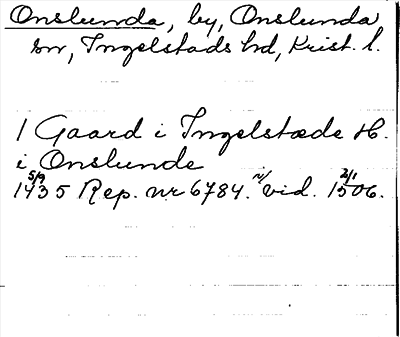 Onslunda, by, Onslunda
sn, Ingelstads hd, Krist. l.
1 Gaard i Ingelstæde H.
i Onslunde
5/9 1435 Rep. nr 6784. vid. 2/1 1506.